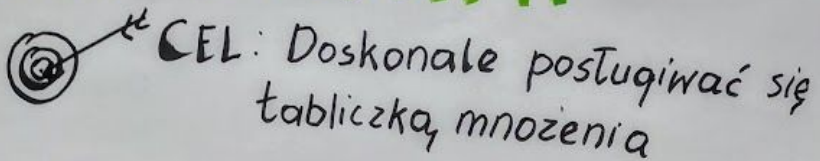 CEL: Doskonale posługiwać się
tabliczką mnożenia